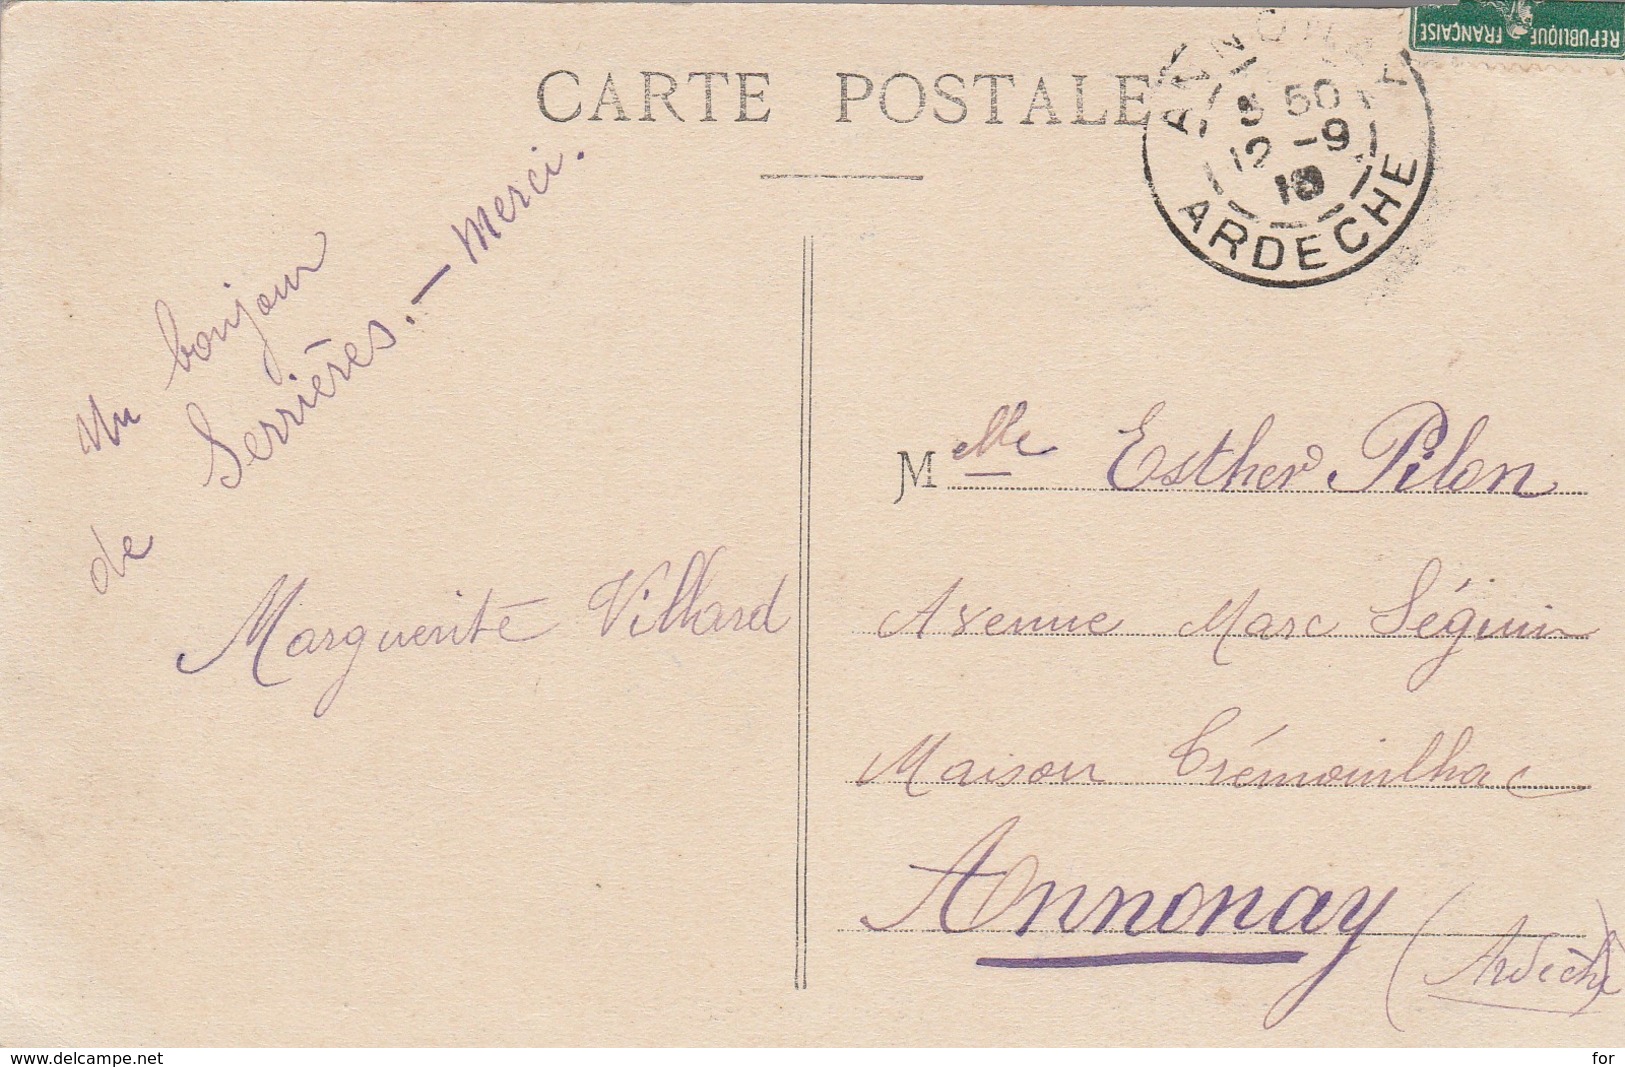 CARTE POSTALE
REPUBLIQUE FRANÇAISE
ANNONAY
3 50
12 -9
ARDECHE
Un bonjour
de Serrières. — Merci.
Marguerite Villard
M elle Esther Pilon
Avenue Marc Séguin
Maison Trémouilhac
Annonay
(Ardèche)
www.delcampe.net
for